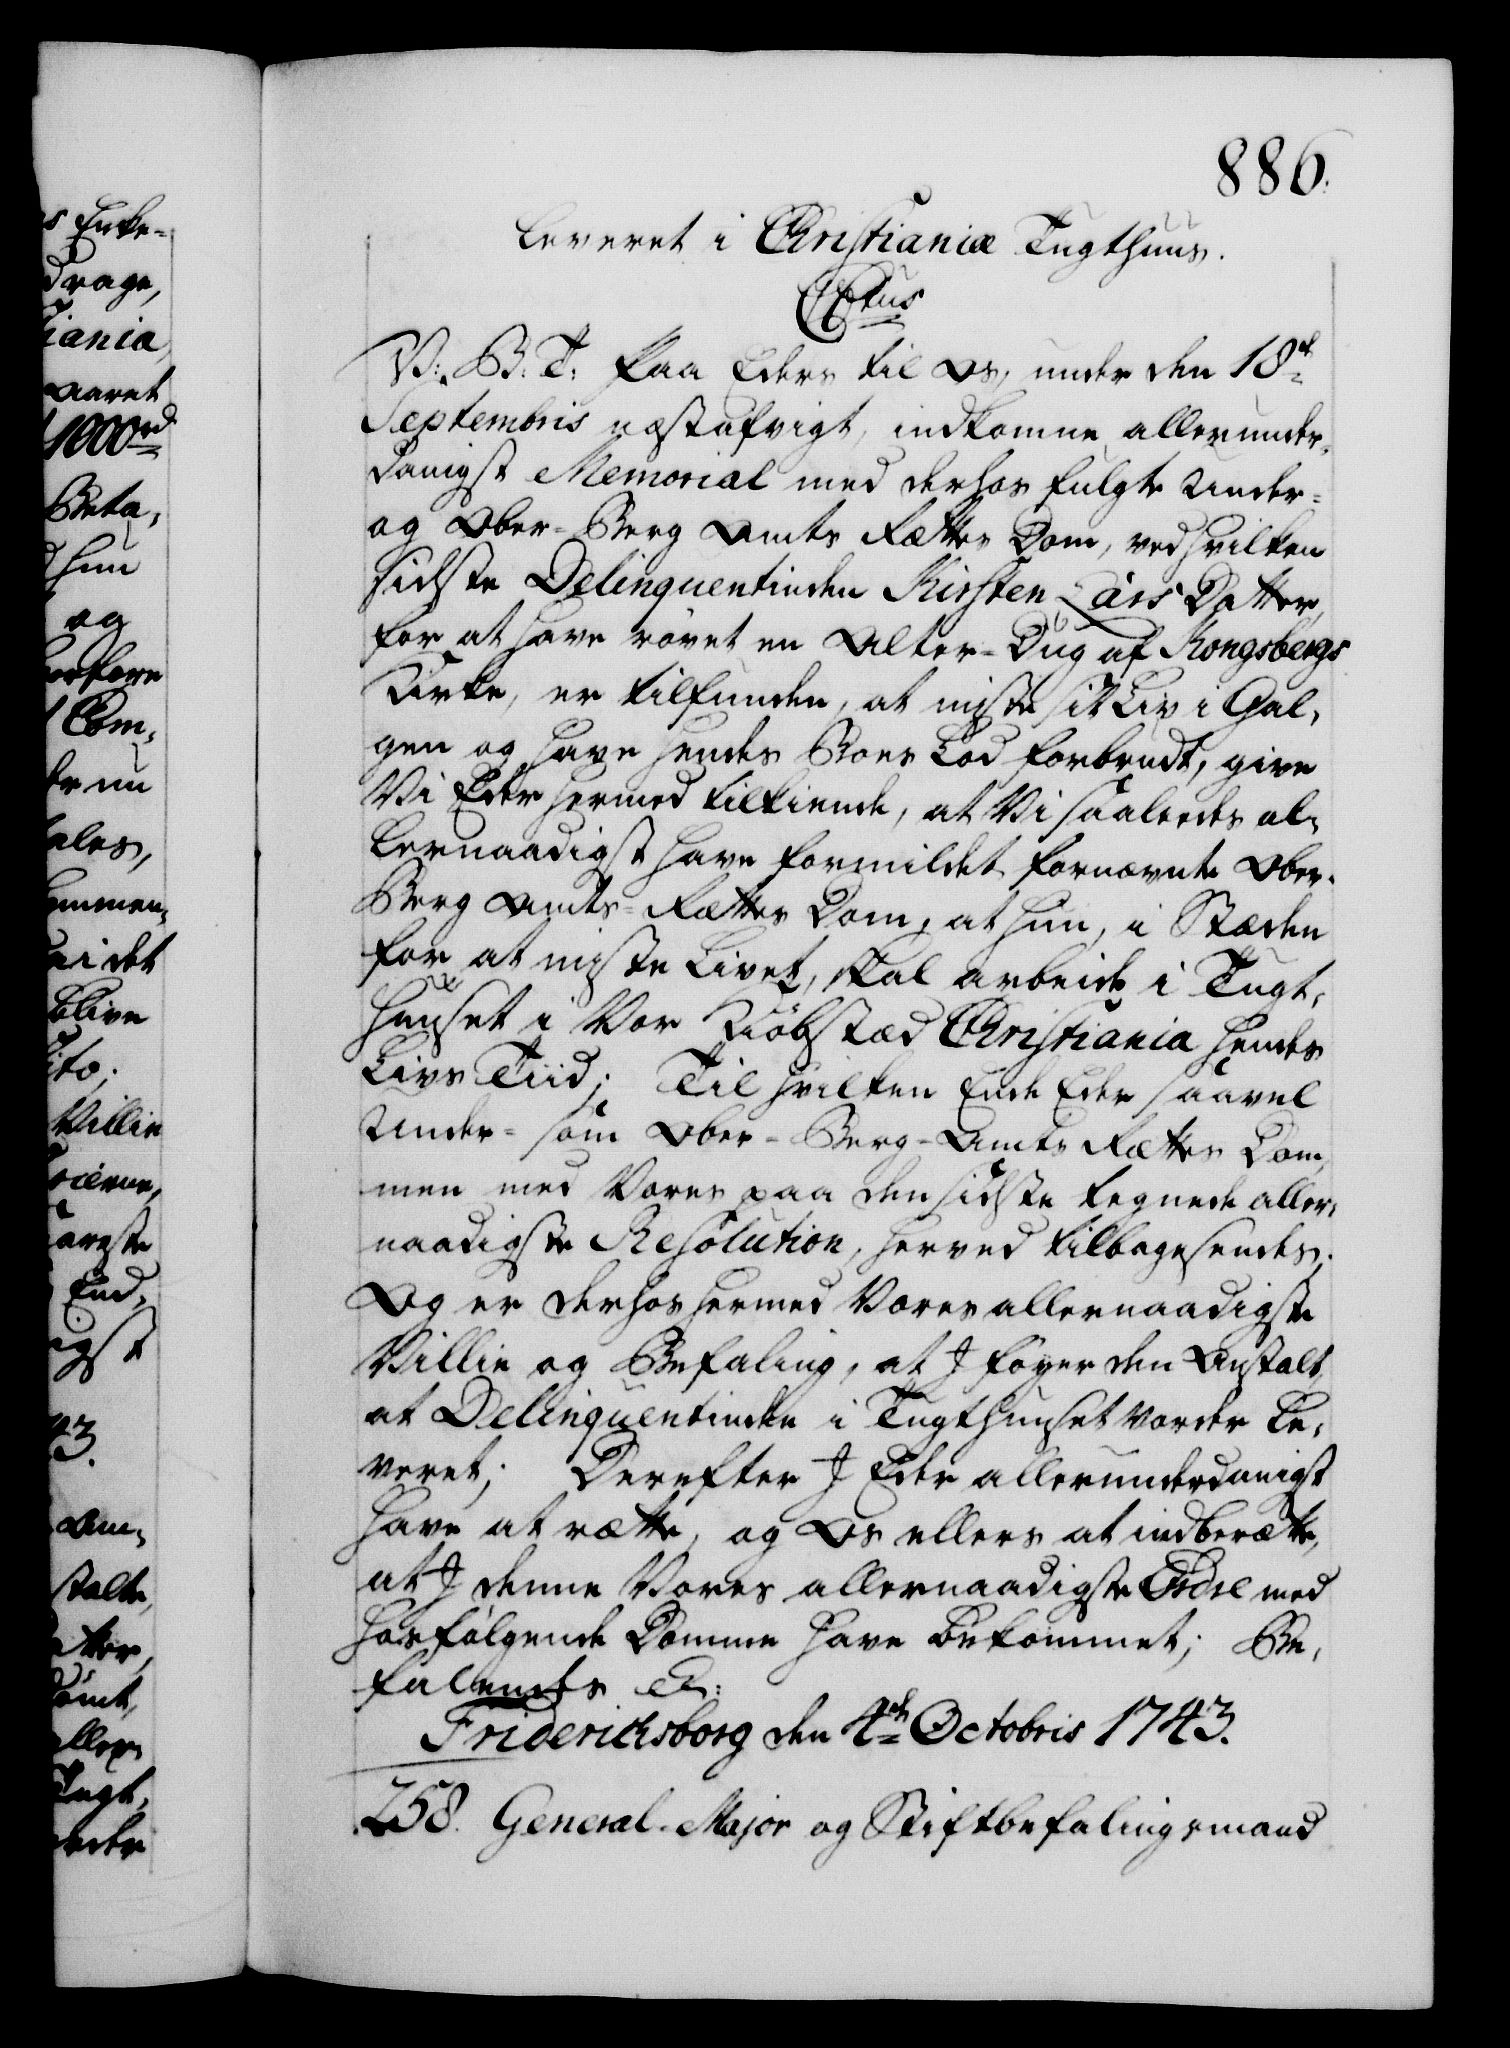 886.
leveret i Christianiæ Tugthuus.
CCtus
V: B. T: Paa Eders til Os, under den 18de
Septembris næstafvigt, indkomne allerunder-
danigst Memorial med derhos fulgte Under-
og Ober-Berg Amts Rættes Dom, ved hvilken
sidste Delinquentinden Kirsten Lars Datter,
for at have røvet en Alter-Dug af Kongsbergs
Kirke, er tilfunden, at miste sit Liv i Gal-
gen og have hendes Boes Lod forbrudt, give
Vi Eder hermed tilkiende, at Vi saaledes al-
lernaadigst have formildet fornævnte Ober-
Berg Amts-Rættes Dom, at hun, i Stæden
for at miste Livet, skal arbeide i Tugt-
huuset i Vor Kiøbstæd Christiania hendes
Livs Tiid; Til hvilken Ende Eder saavel
Under- som Ober-Berg-Amts Rættes Dom,
men med Vores paa den sidste tegnede aller-
naadigste Resolution, herved tilbagesendes.
Og er derhos hermed Vores allernaadigste
Villie og Befaling, at I føyer den Anstalt,
at Delinquentinden i Tugthuuset vorder le-
veret; Derefter I Eder allerunderdanigst
have at rætte, og Os ellers at indberætte,
at I denne Vores allernaadigste Ordre med
hosfølgende Domme have bekommet; Be-
falendes etc:
Friderichsborg den 4de Octobris 1743.
258. General-Major og Stiftbefalingsmand
s Enke-
drage,
iania,
Aaret
1000rd
Beta-
hun
og
Com-
nu
ales,
det
blive
ito;
Villie
End-
igst
43.
stalte,
atter,
ømt,
aller-
Tugt-